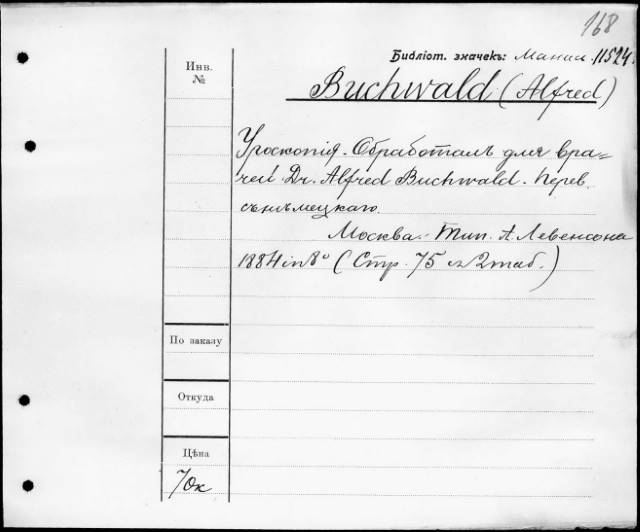 168
Библіот. значекъ: Манил. 11524.
Инв.
№
Buchwald (Alfred)
Уроскопія. Обработалъ для вра-
чей Dr. Alfred Buchwald. Перев.
съ нѣмецкаго.
Москва. Тип. А. Левенсона
1884 in 8° (Стр. 75 съ 2 таб.)
По заказу
Откуда
Цѣна
70к